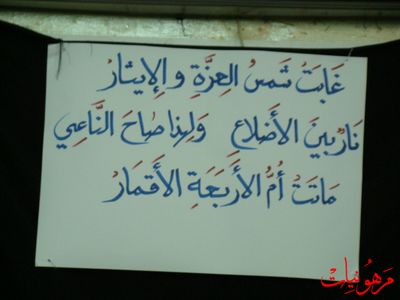 غَابَتْ شَمْسُ العِزَّةِ و الإيثارْ
نَارٌ بَينَ الأَضلاعِ وَلِهذا صَاحَ النَّاعِي
مَاتَتْ أُمُّ الأَربَعَةِ الأَقمَارْ
مرهونيات